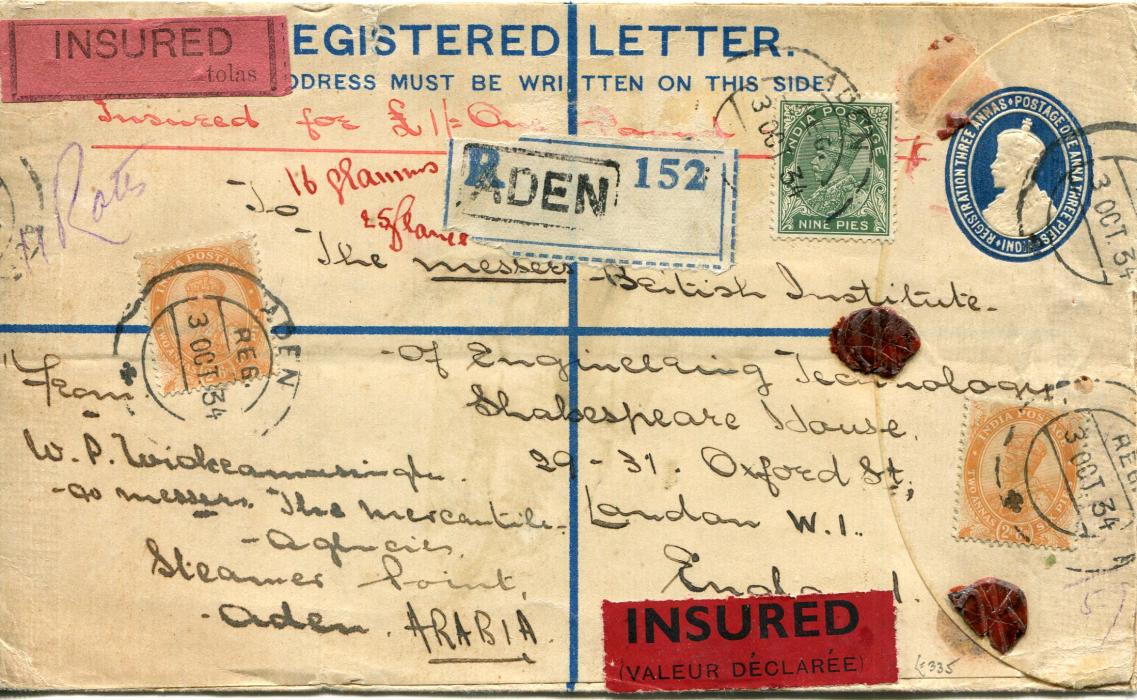 INSURED
tolas
EGISTERED LETTER.
DDRESS MUST BE WRITTEN ON THIS SIDE.
Insured for £1/= One Pound
R ADEN 152
INDIA POSTAGE
NINE PIES
ADEN
REG.
3 OCT. 34
REGISTRATION THREE ANNAS • POSTAGE ONE ANNA THREE PIES
3 OCT. 34
16 grammes
25
To
The messers British Institute.
Of Engineering Technology.
Shakespeare House.
29-31. Oxford St,
London W.1..
England.
INDIA POSTAGE
ADEN
REG.
3 OCT. 34
From
W. P. Wickramasinghe.
c/o messers. The Mercantile
Agencies.
Steamer Point,
Aden. ARABIA.
INDIA POSTAGE
TWO ANNAS
REG.
3 OCT. 34
INSURED
(VALEUR DÉCLARÉE)